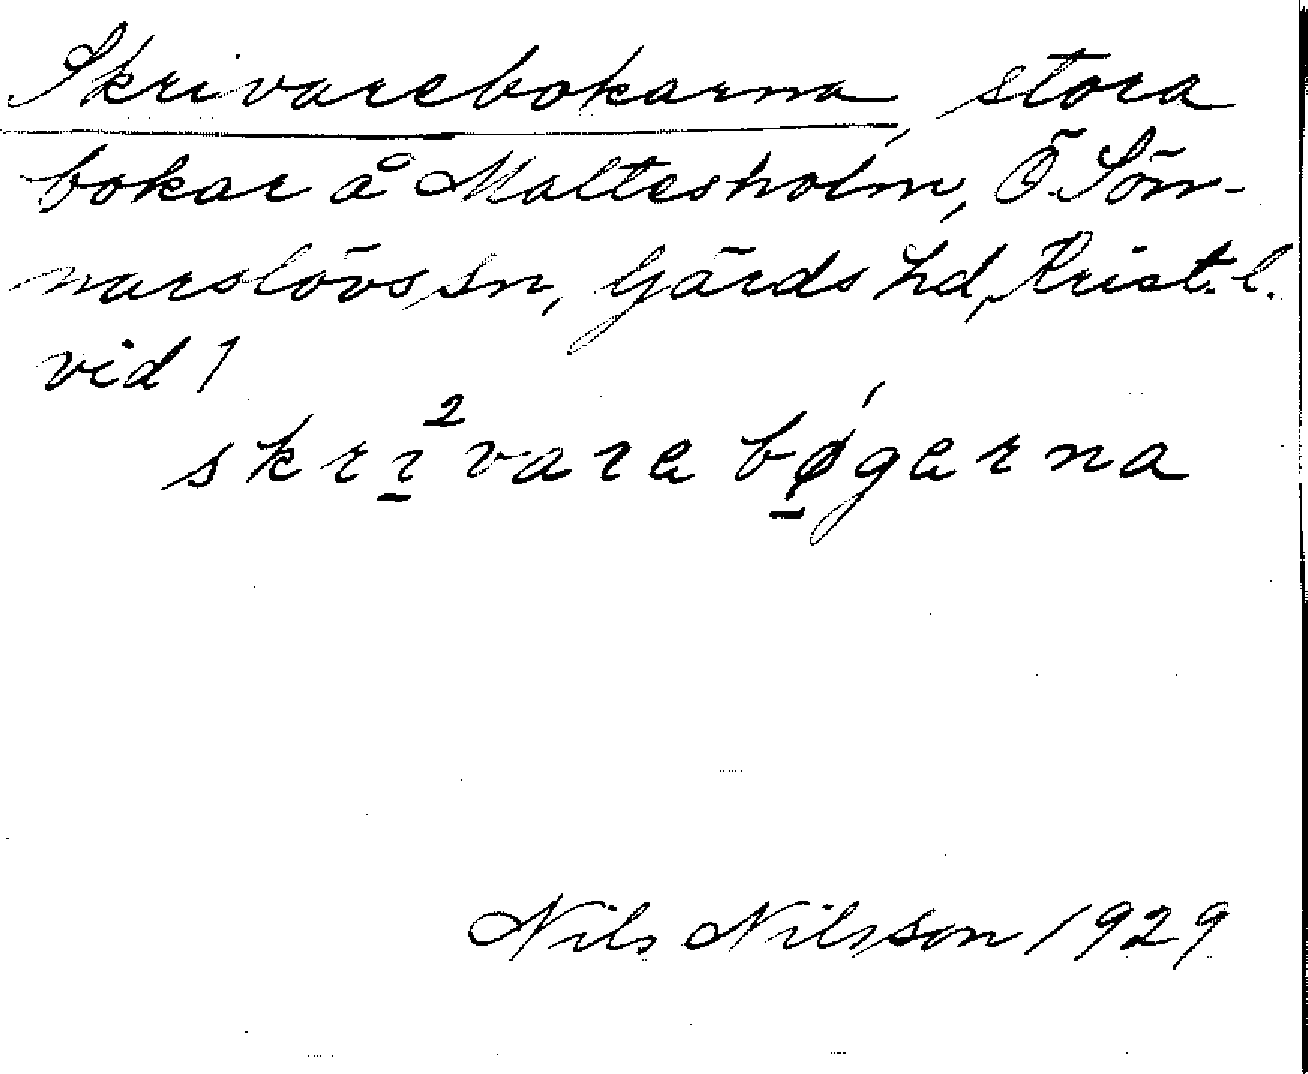 Skrivarebokarna, stora
bokar å Maltesholm, Ö Söm-
narslövs sn, Gärds hd, Krist. l.
vid 1
skrı̱²vare bǿ̱gerna
Nils Nilsson 1929